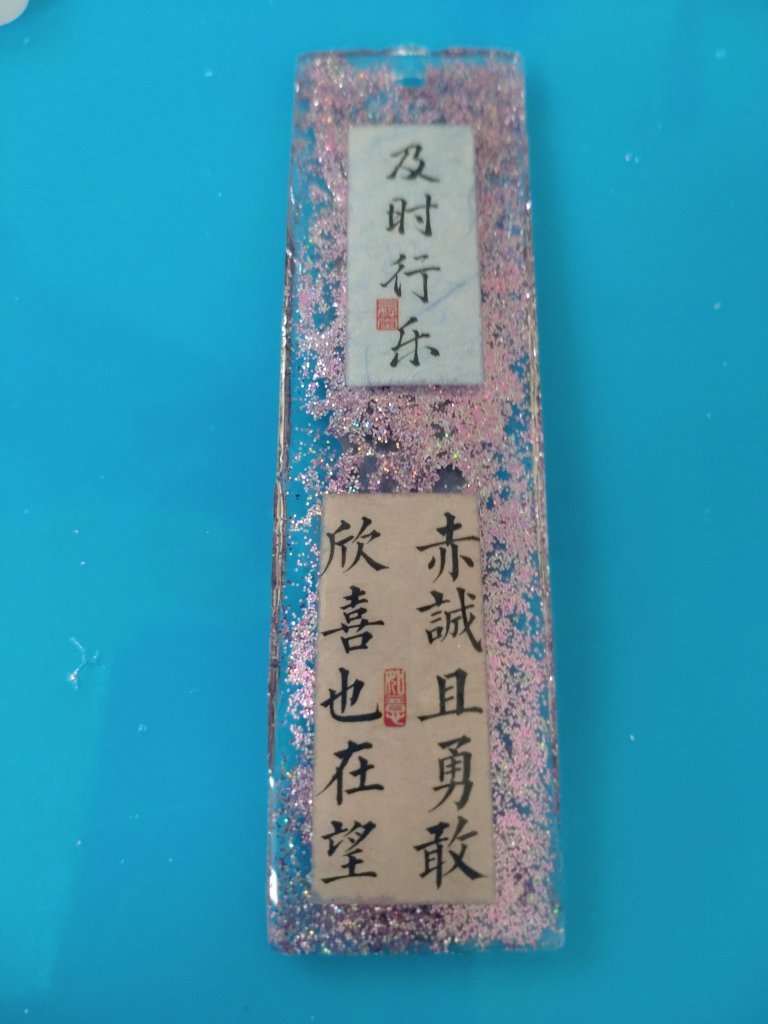 及时行乐
赤誠且勇敢
欣喜也在望
如意